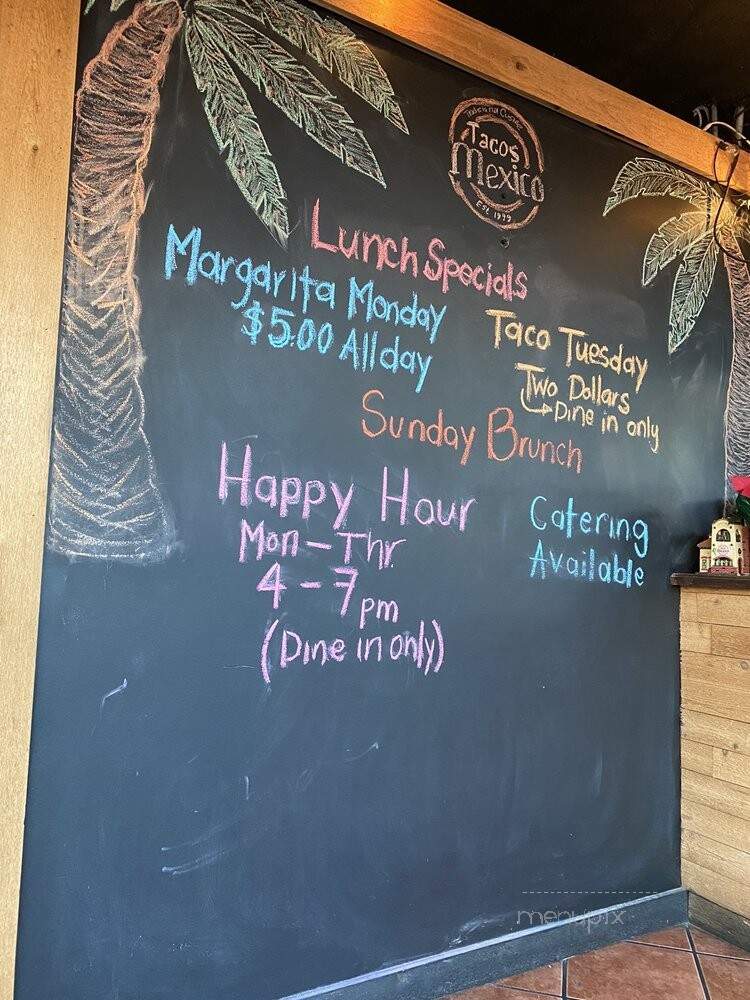 Traditional Cuisine
Tacos
Mexico
Est 1999
Lunch Specials
Margarita Monday
$5.00 All day
Taco Tuesday
Two Dollars
Dine in only
Sunday Brunch
Happy Hour
Mon - Thr
4 - 7 pm
(Dine in only)
Catering
Available
menupix